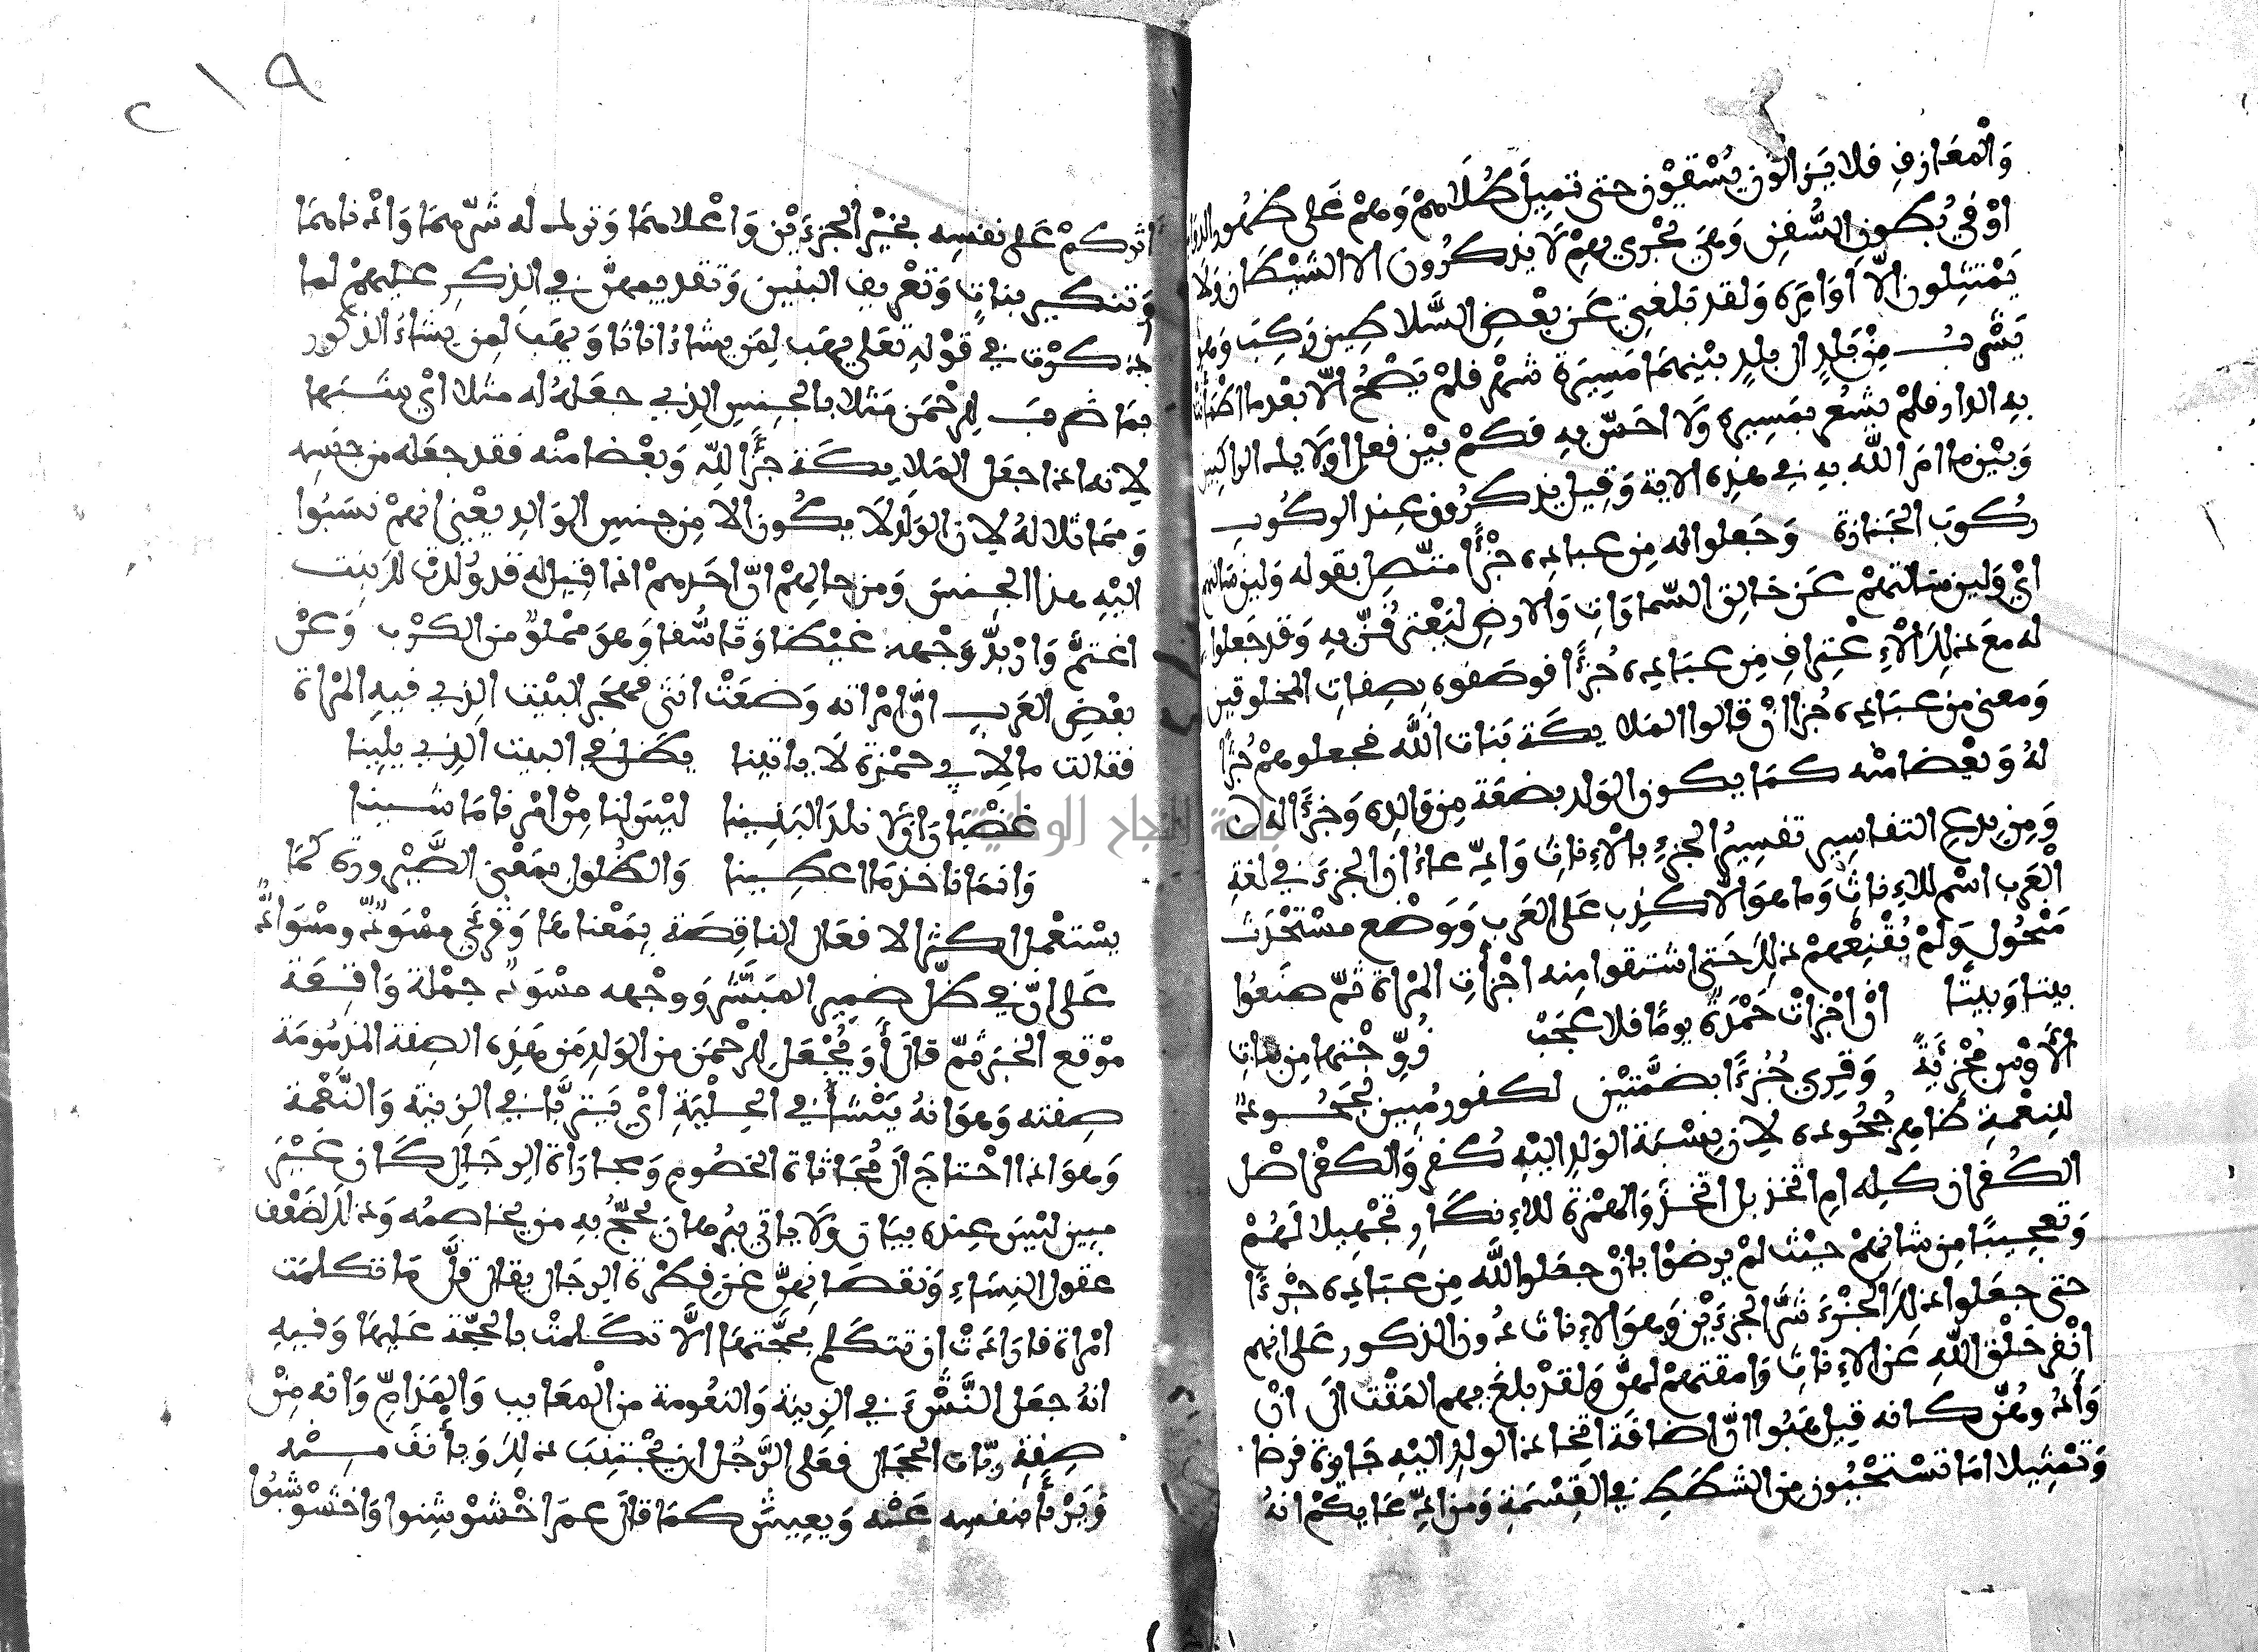 وَالْمعَازفِ فلا يَزالُون يُسْقَوْن حتى تميلَ طُلَاهمْ وَهمْ عَلى ظهُور الدواب
اوْ في بُطون السُّفن وَهيَ تجْري بهمْ لَا يذكرُون الا الشيْطَان وَلا
يَمْتثلون الّا أوَامِرَه وَلقد بَلغني عَن بعْضِ السَّلاطين رَكبَ وَهو
يَشْربُ مِنْ بَلدٍ الى بلدٍ بيْنهمَا مَسِيرَة شهْر فلمْ يَصْحُ الّا بعْد ما اطمأنت
بهِ الدار فلمْ يشْعُر بمَسِيره وَلَا احَسّ به فكمْ بيْن فعل اولَايك الراكبين
وَبيْن ما امَر اللّه بهِ في هذِه الاية وَقيل يذكرُون عند الركُوب
ركُوبَ الجَنازة وَجَعلوا له مِن عبادِه جُزْءًا متّصِل بقوله وَلين سَالتهم
ايْ وَلين سَالتهمْ عَن خَالق السّماوَات وَالارضِ ليَعْترفُنّ به وَقد جَعلوا
له معَ ذلِكَ الْاعْتِراف مِن عبَادِه جُزْءًا فوصَفوه بصِفات المخلوقين
وَمعنى من عبَادِه جُزءا انْ قالوا الملايكَة بَنات اللّه فجعلوهمْ جُزْءًا
لهُ وَبعْضا منْه كمَا يكون الوَلد بضعَة مِن وَالِدِه وَجُزْءًا له
وَمِن بدع التفاسِير تفسِيرُ الجزءِ بالْاناث وَادّعاءُ ان الجزءَ في لغةِ
الْعَرب اسْم للاناث وَما هوَ الّا كذِب عَلى العَرب وَوَضْع مسْتَحْدَث
مَنْحُول وَلمْ يُقْنِعْهمْ ذلِكَ حَتى اشتقوا منه اجْزأَت المرْاة ثمّ صَنَعُوا
بيتا وَبيتًا انْ اجْزأتْ حُرّةٌ يومًا فلا عجَبٌ زُوِّجْتها مِن بنات
الْأَوْس مُجْزِئَةً وَقري جُزُءًا بضَمَّتيْن لكفور مُبين لجَحُودٌ
للنِعْمةِ ظاهر جُحُوده لان نِسْبَة الوَلدِ اليْهِ كُفر وَالكفر اصْل
الكُفران كلِه امِ اتخذ بل اتخَذَ وَالهمْزة للانكَارِ تجْهيلا لَهُمْ
وَتعجيبًا مِن شانهمْ حيْث لمْ يرضوْا بانْ جعَلوا للّهِ مِن عبَادِه جُزْءًا
حتى جعَلوا ذلِكَ الجُزْءَ شَرَّ الجزءَيْن وَهوَ الاناث دُون الذكور عَلى انهم
انْفر خَلْق اللّهِ عَن الاناث وَامقتهمْ لهنَّ وَلقدْ بلغَ بهم المَقْت الى انْ
وَأَدُوهُنَّ كانه قيل هَبُوا انّ اضافَة اتخاذ الولدِ اليْه جَايزة فرضا
وَتمْثيلا اما تسْتحْيُون مِن الشَطَط في القِسْمةِ وَمن ادّعايكمْ انهُ
اثركمْ عَلى نفسِه بخيْر الجزءَيْن وَاعْلاهمَا وَترك له شَرّهمَا وَادْناهمَا
وَتنكير بناتٍ وَتعْريف البنين وَتقديمهنَّ في الذكر عليهمْ لما
ذكرْت في قوْلِه تعَلى يهَب لمَن يشاءُ اناثا وَيهَب لمن يشاءَ الذكور
بمَا ضربَ للرحْمَن مَثلا بالجِنسِ الذي جعَلهُ له مثلا ايْ شبَها
لانه اذا جعَل الملايكَة جزْءًا للّه وَبعْضا منْه فقد جعَله من جنسِه
وَممَاثلا لهُ لان الوَلد لَا يكُون الا مِن جنسِ الوَالدِ يعْني انهمْ نسَبُوا
اليْه هذا الجنسَ وَمن حالِهمْ انّ احَدهمْ اذا قيل له قد وُلدتْ لك بنت
اغتمَّ وَارْبدَّ وَجْهه غيْظا وَتاسُّفا وَهوَ ممْلوٌّ من الكرْب وَعنْ
بعْضِ العَرب انَّ امْراته وَضعَتْ انثى فهجَر البيْت الذي فيهِ المرْاة
فقالت ما لِابي حمْزة لَا ياتينا يظَل في البيت الذي يلينا
غضْبَانَ الَّا نلدَ البَنِينا ليْسَ لنا مِنْ امْرنا مَا شينا
وَانمَا ناخذ مَا اعطينا وَالظُلول بمَعْنى الصَّيْرورة كمَا
يسْتعْمل اكثر الافعَال الناقِصَة بمَعْناهَا وَقرئ مسْوَدٌّ ومسْوَادٌّ
عَلى انّ في ظلّ ضمِير المبَشَّر وَوجْهه مسْوَدٌّ جمْلة وَاقِعَة
موْقع الخبَر ثمّ قالَ أَوَ يجْعَل للرحْمَن من الوَلدِ مَن هَذِه الصِفة المذمُومَة
صِفته وَهوَ انهُ يَنْشَأُ في الحِلْيَةِ ايْ يَتربَّى في الزينة وَالنَّعْمة
وَهوَ اذا احْتاجَ الَى مُجَاثاة الخصُوم وَمجاراة الرجَال كَان غيْرَ
مبين ليْسَ عِنده بيَان وَلَا ياتي ببُرهان يحْتجّ به من يخاصمُه وَذلكَ لضَعْف
عقول النسَاءِ وَنقصَانِهنَّ عَن فِطْرة الرجَال يقال قلَّ مَا تكلمَت
امْراة فارَادَتْ ان تتكلم بحُجَّتهَا الَّا تكَلمتْ بالحجّة عَليهَا وَفيهِ
انهُ جعَل النَّشْءَ في الزينة وَالنعُومة من الْمعَايب وَالمَذامِّ وَانه مِنْ
صِفةِ ربّات الحجَال فعَلى الرَّجُل ان يجْتنِبَ ذلِكَ وَيأنَفَ منْه
وَيَرْبَأَ بنفسِه عَنْه وَيعِيشَ كمَا قالَ عمَر اخْشوْشِنوا وَاخْشَوْشبُوا